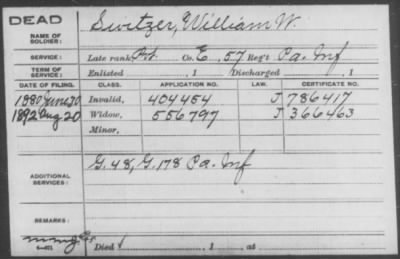 DEAD
NAME OF SOLDIER: Switzer, William W.
SERVICE: Late rank Pvt. Co. E, 57 Reg't Pa. Inf
TERM OF SERVICE: Enlisted , 1 Discharged , 1
DATE OF FILING. CLASS. APPLICATION NO. LAW. CERTIFICATE NO.
1880 June 30 Invalid, 404454 J 786417
1892 Aug 20 Widow, 556797 J 366463
Minor,
ADDITIONAL SERVICES: G. 48, G. 178 Pa. Inf
REMARKS:
Died , 1 at